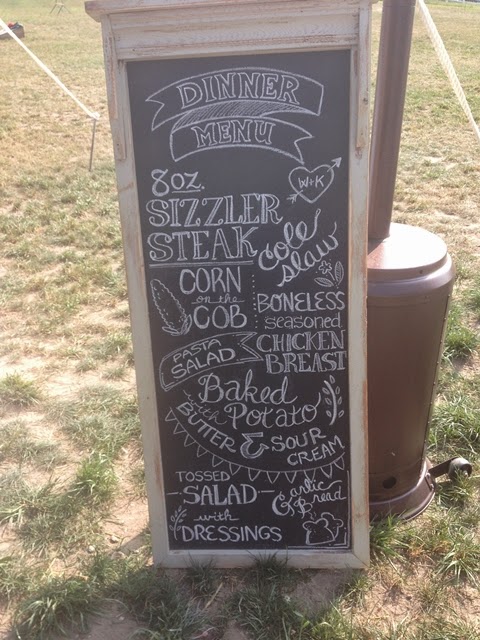 DINNER
MENU
8 OZ.
W+K
SIZZLER
STEAK
cole
slaw
CORN
on the
COB
BONELESS
seasoned
CHICKEN
BREAST
PASTA
SALAD
Baked
with Potato
BUTTER & SOUR
CREAM
TOSSED
SALAD
with
DRESSINGS
Garlic
Bread